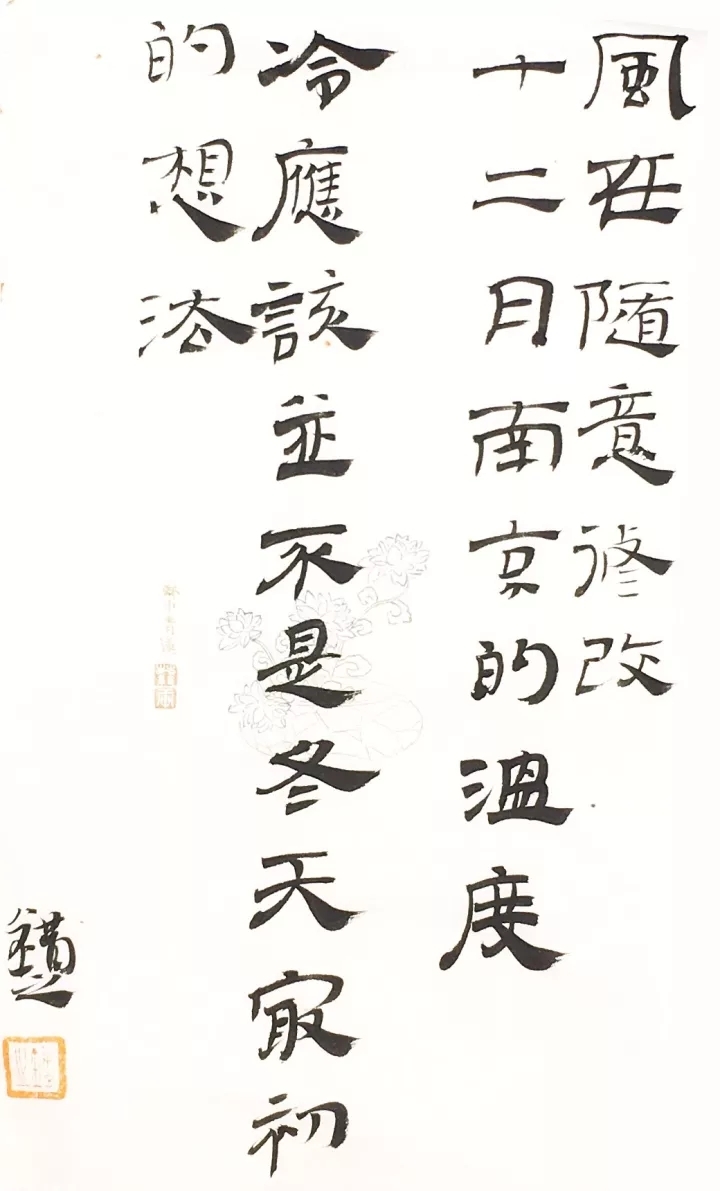 風在随意修改
十二月南京的溫度
冷應該並不是冬天㝡初
的想法